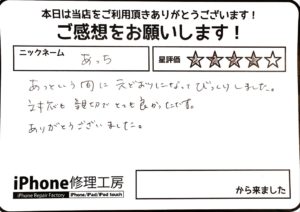 本日は当店をご利用頂きありがとうございます！
ご感想をお願いします！
ニックネーム
あっち
星評価
★★★★★
あっという間に元どおりになってびっくりしました。
対応も親切でとても良かったです。
ありがとうございました。
iPhone修理工房
iPhone Repair Factory
iPhone/iPad/iPod touch
から来ました